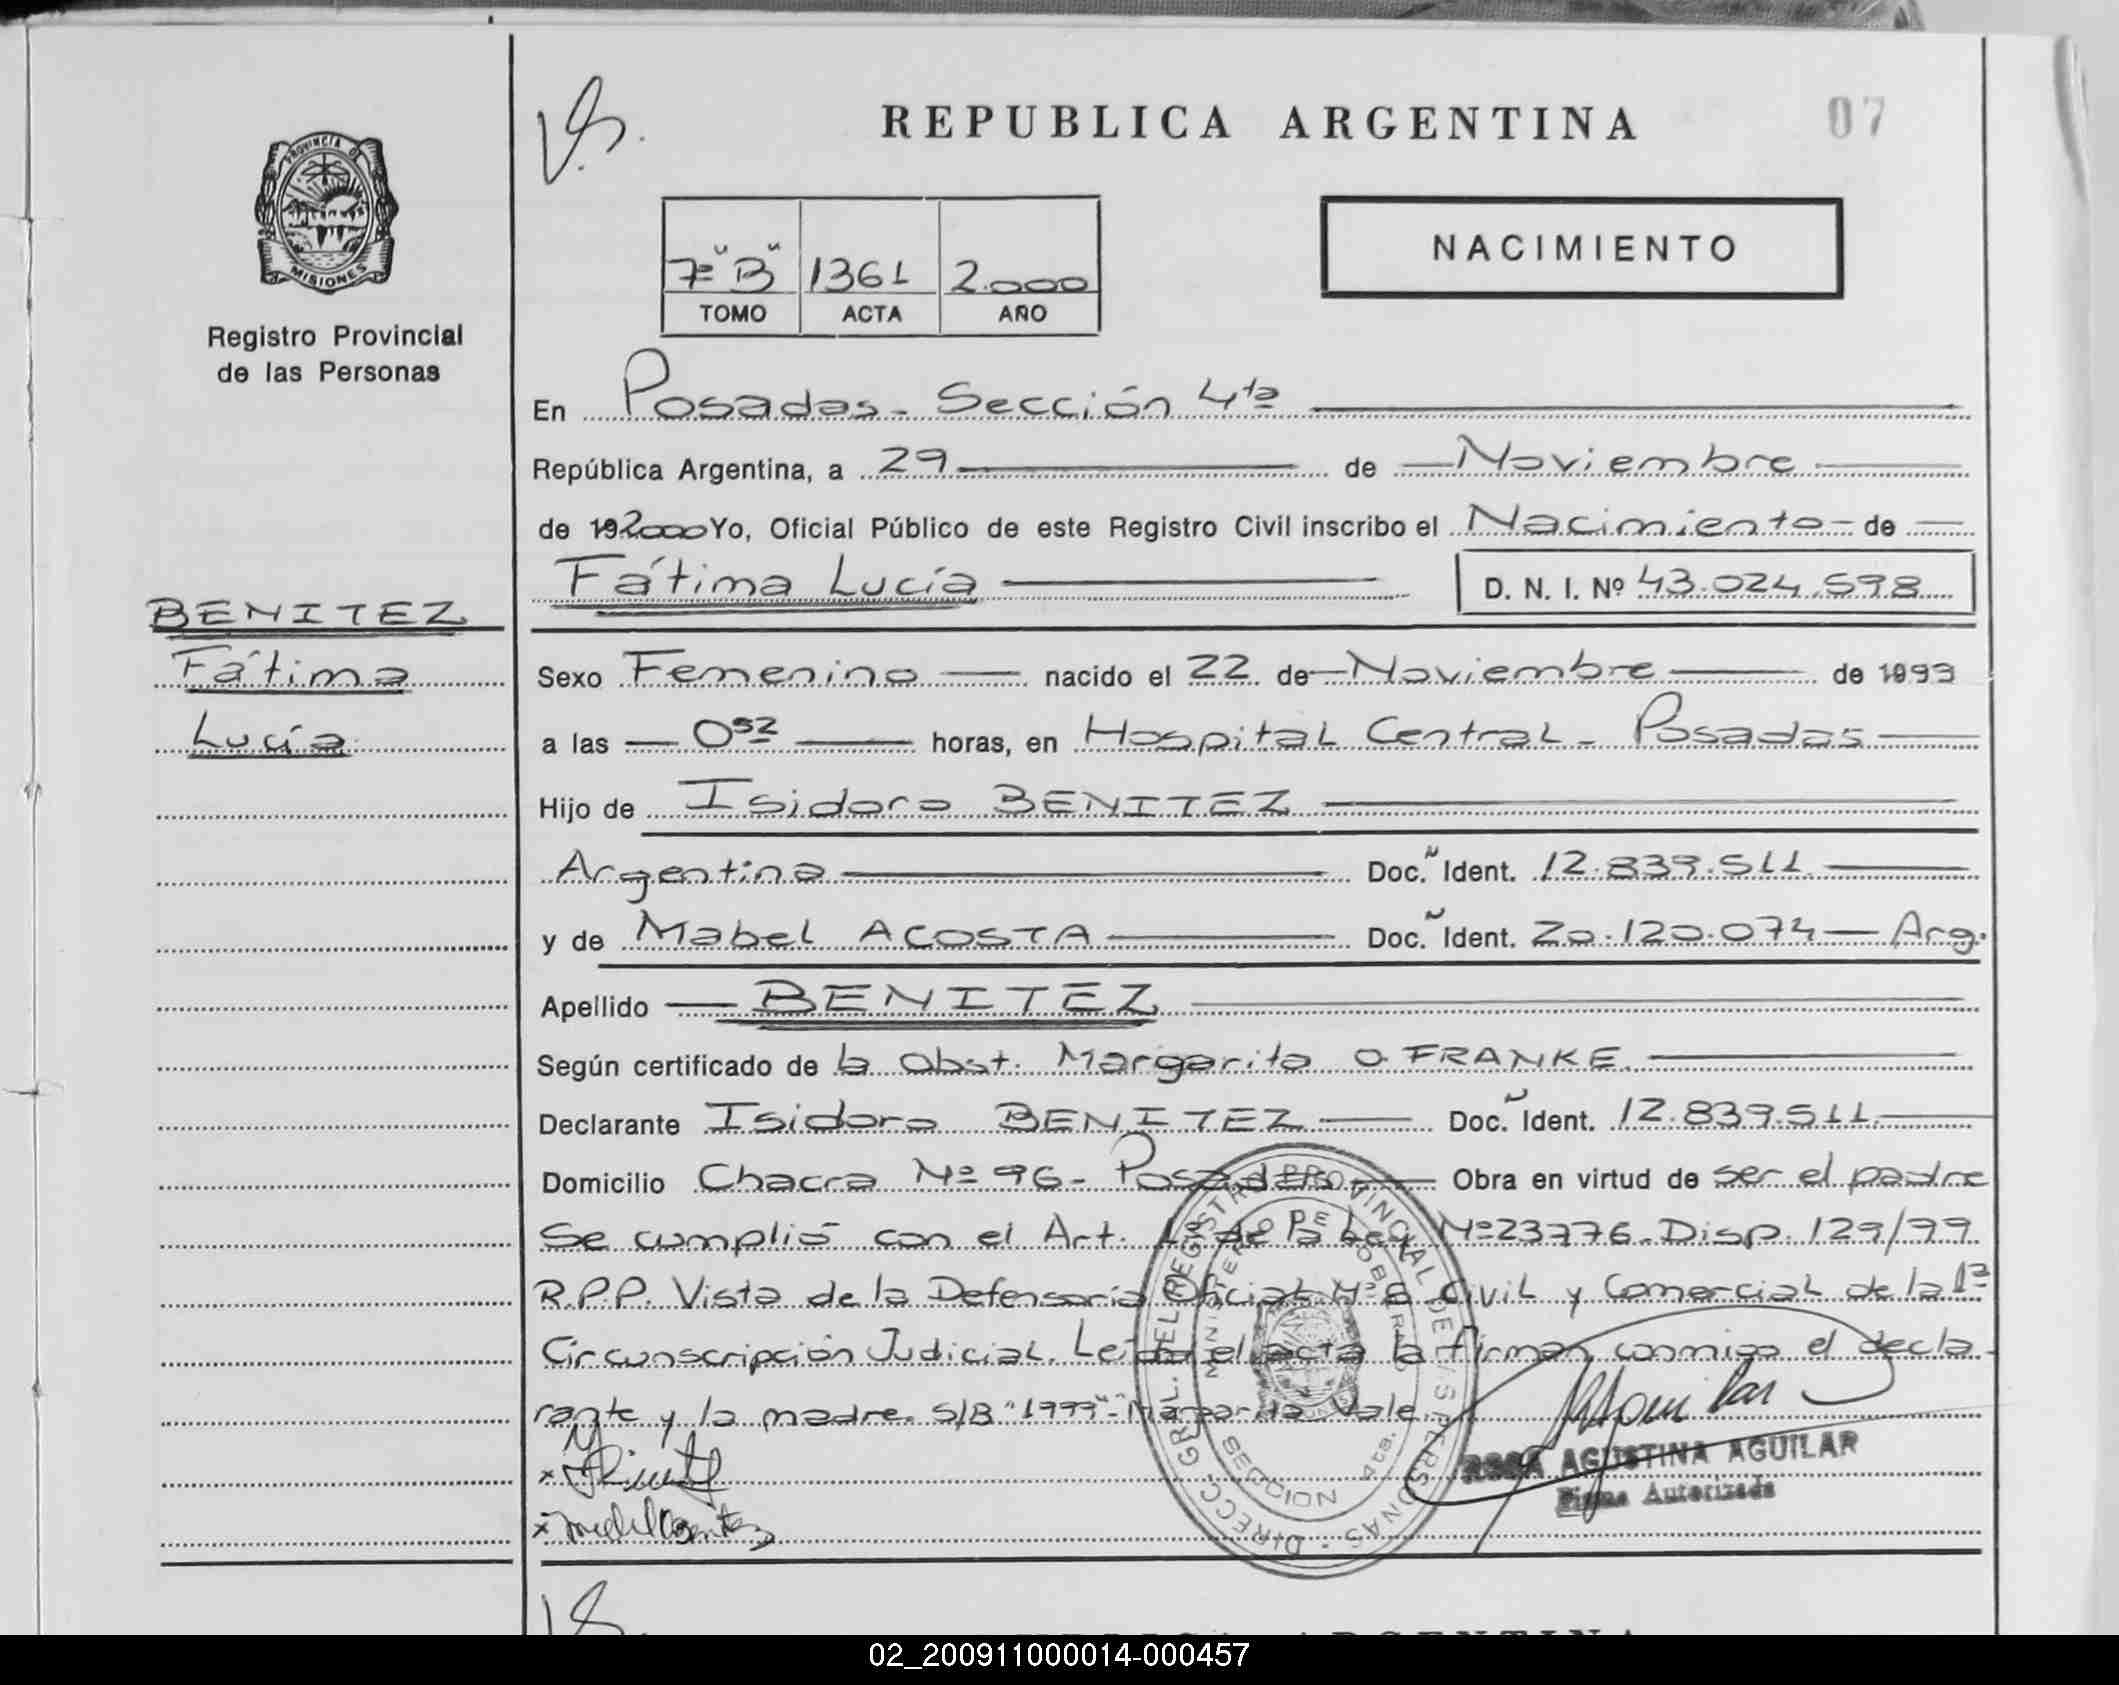 REPUBLICA ARGENTINA
07
PROVINCIA DE MISIONES
Registro Provincial
de las Personas
7º "B" 1361 2.000
TOMO ACTA AÑO
NACIMIENTO
En Posadas - Sección 4ta
República Argentina, a 29 de Noviembre
de 192000 Yo, Oficial Público de este Registro Civil inscribo el Nacimiento de
Fátima Lucía D. N. I. Nº 43.024.598
BENITEZ
Fátima
Lucía
Sexo Femenino nacido el 22 de Noviembre de 1999
a las 052 horas, en Hospital Central - Posadas
Hijo de Isidoro BENITEZ
Argentina Doc. Ident. 12.839.511
y de Mabel ACOSTA Doc. Ident. 20.120.074 - Arg.
Apellido BENITEZ
Según certificado de la Obst. Margarita O. FRANKE.
Declarante Isidoro BENITEZ Doc. Ident. 12.839.511
Domicilio Chacra Nº 96 - Posadas Obra en virtud de ser el padre
Se cumplió con el Art. 1º de la Ley Nº 23776 - Disp. 129/99
R.P.P. Vista de la Defensoría Oficial Nº 8 Civil y Comercial de la 1ª
Circunscripción Judicial. Leída el acta la firman conmigo el decla
rante y la madre. S/B "1999" - Margarita Vale.
DIRECC. GRAL. DEL REGISTRO PROVINCIAL DE LAS PERSONAS
MINISTERIO DE GOBIERNO
SECCION 4ta.
ROSA AGUSTINA AGUILAR
Firma Autorizada
02_200911000014-000457